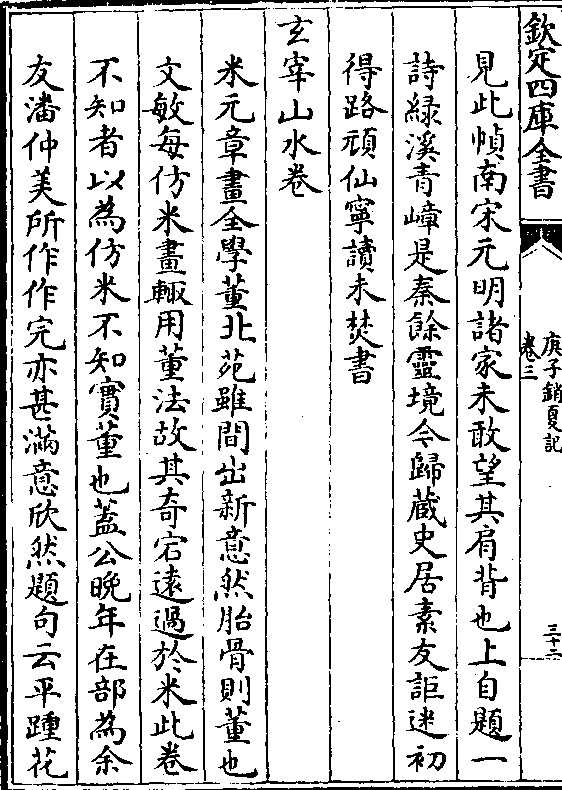 欽定四庫全書
庚子銷夏記
卷三
三十二
見此幀南宋元明諸家未敢望其肩背也上自題一
詩緑溪青嶂是秦餘靈境今歸蔵史居素友詎迷初
得路頑仙寧讀未焚書
玄宰山水卷
米元章畫全學董北苑雖間出新意然胎骨則董也
文敏每仿米畫輙用董法故其奇宕遠過於米此卷
不知者以為仿米不知實董也蓋公晚年在部為余
友潘仲美所作作完亦甚滿意欣然題句云平踵花